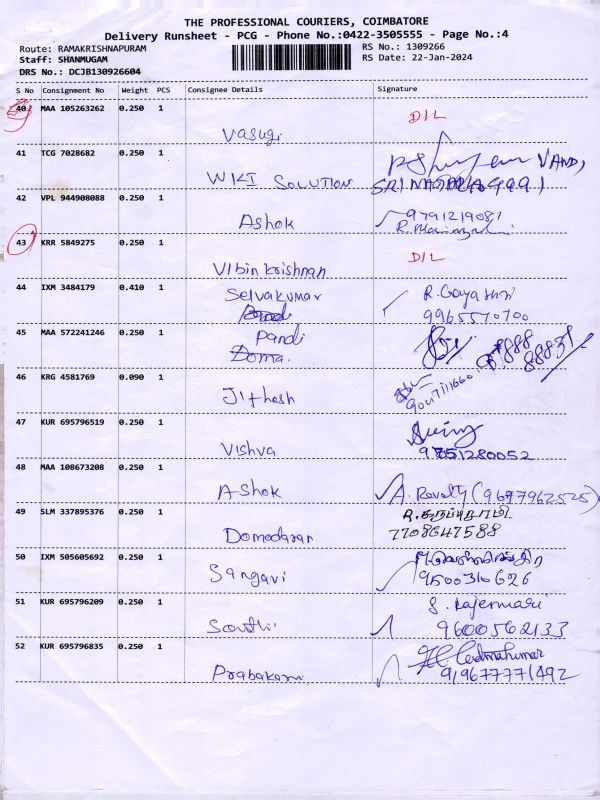 THE PROFESSIONAL COURIERS, COIMBATORE
Delivery Runsheet - PCG - Phone No.:0422-3505555 - Page No.:4
Route: RAMAKRISHNAPURAM
RS No.: 1309266
Staff: SHANMUGAM
RS Date: 22-Jan-2024
DRS No.: DCJB130926604
S No Consignment No Weight PCS Consignee Details Signature
40 MAA 105263262 0.250 1
Vasugi DIL
41 TCG 7028682 0.250 1
WIKI SOLUTION
42 VPL 944908088 0.250 1
Ashok 9791219081
43 KRR 5849275 0.250 1
Vibin krishnan DIL
44 IXM 3484179 0.410 1
Selvakumar R. Gayathri
9965570700
45 MAA 572241246 0.250 1
Pandi
46 KRG 4581769 0.090 1
Jithesh
47 KUR 695796519 0.250 1
Vishva 9751280052
48 MAA 108673208 0.250 1
Ashok A. Revathy (9677962525)
49 SLM 337895376 0.250 1
Domodaran 7708647588
50 IXM 505605692 0.250 1
Sangavi 9500310626
51 KUR 695796209 0.250 1
S. Rajeswari
Santhi 9600562133
52 KUR 695796835 0.250 1
Prabakaran 919677771492